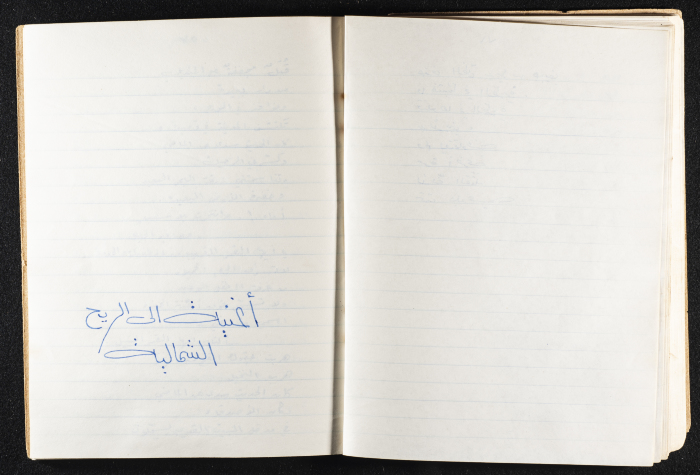 أغنية الى الريح
الشمالية